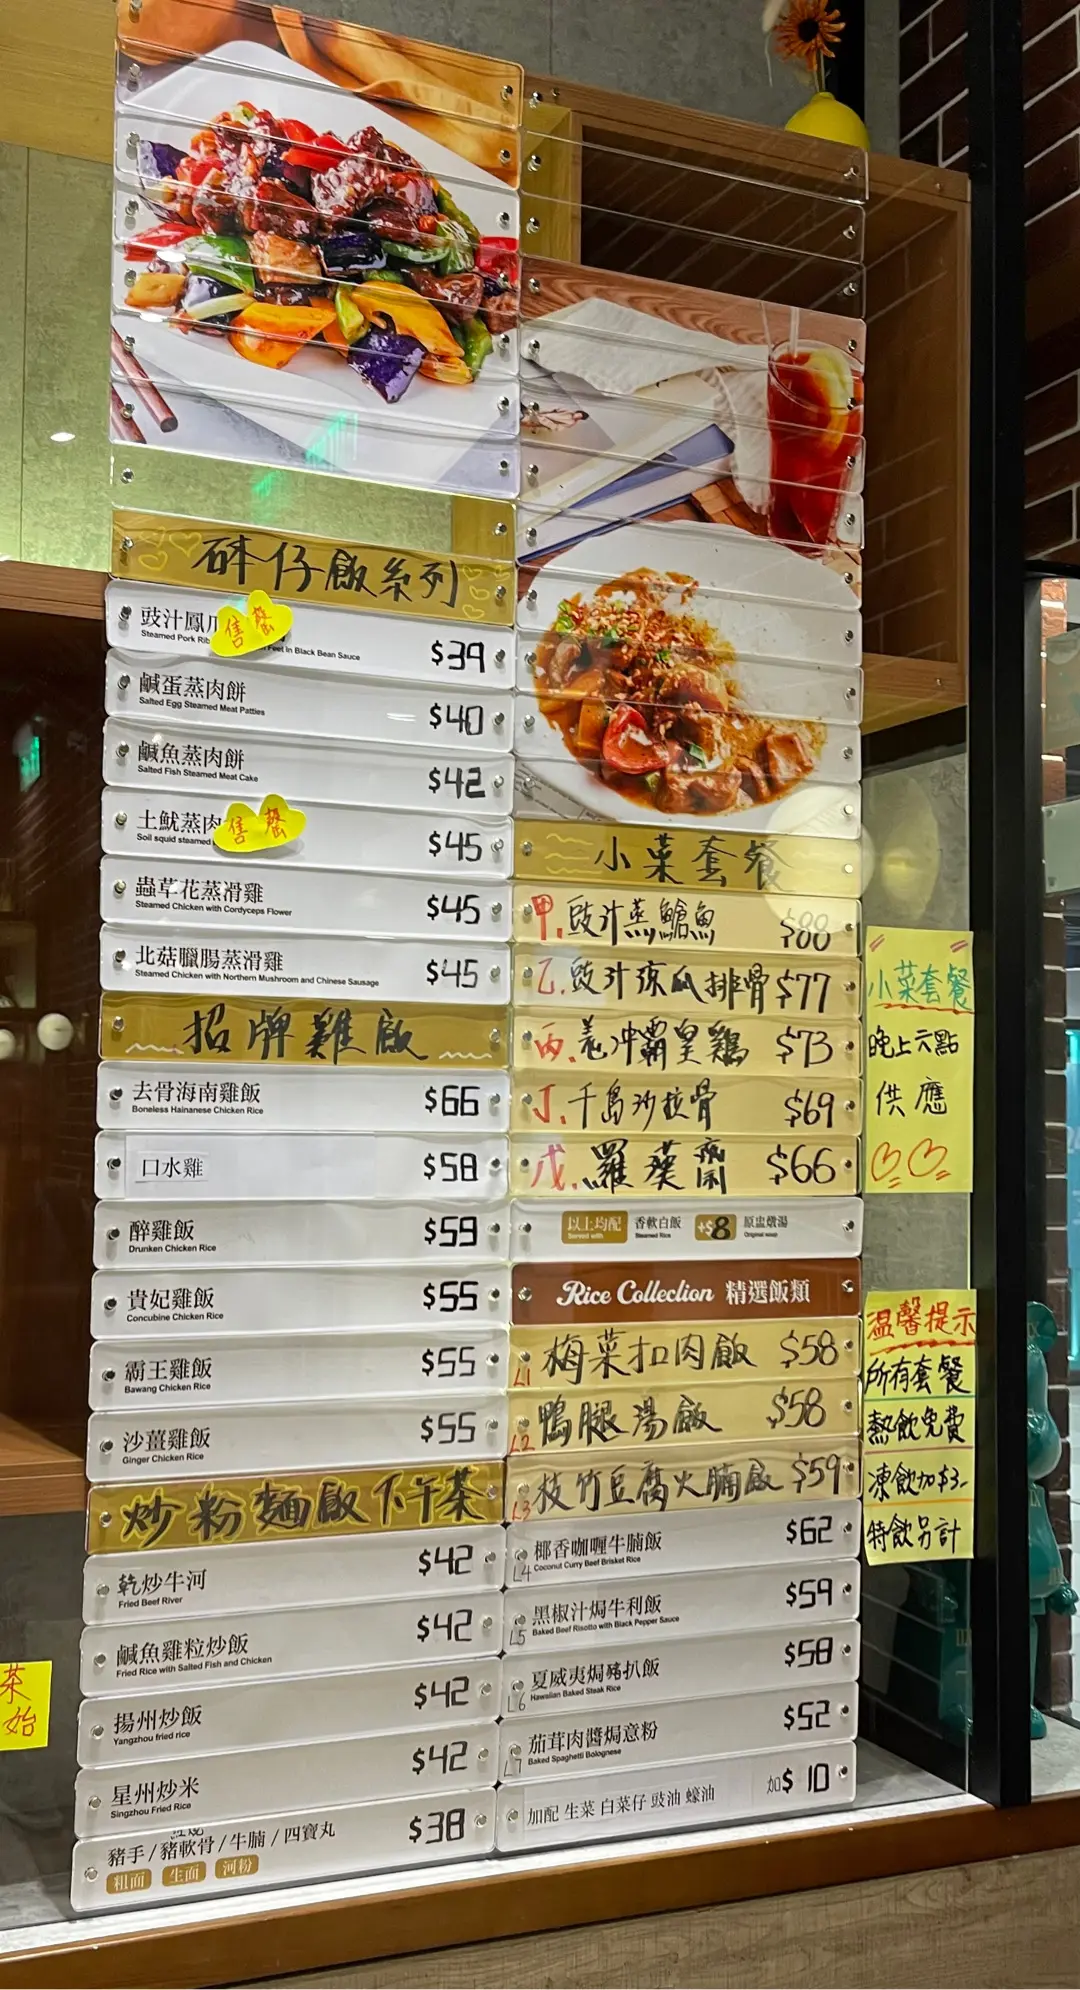 砵仔飯系列
豉汁鳳爪
售罄
Steamed Pork Rib
Feet in Black Bean Sauce
$39
鹹蛋蒸肉餅
Salted Egg Steamed Meat Patties
$40
鹹魚蒸肉餅
Salted Fish Steamed Meat Cake
$42
土魷蒸肉
售罄
Soil squid steamed
$45
蟲草花蒸滑雞
Steamed Chicken with Cordyceps Flower
$45
北菇臘腸蒸滑雞
Steamed Chicken with Northern Mushroom and Chinese Sausage
$45
招牌雞飯
去骨海南雞飯
Boneless Hainanese Chicken Rice
$66
口水雞
$58
醉雞飯
Drunken Chicken Rice
$59
貴妃雞飯
Concubine Chicken Rice
$55
霸王雞飯
Bawang Chicken Rice
$55
沙薑雞飯
Ginger Chicken Rice
$55
炒粉麵飯下午茶
乾炒牛河
Fried Beef River
$42
鹹魚雞粒炒飯
Fried Rice with Salted Fish and Chicken
$42
揚州炒飯
Yangzhou fried rice
$42
星州炒米
Singzhou Fried Rice
$42
豬手/豬軟骨/牛腩/四寶丸
$38
粗面 生面 河粉
小菜套餐
甲.豉汁蒸鱠魚 $88
乙.豉汁涼瓜排骨 $77
丙.羗沖霸皇鷄 $73
丁.千島沙拉骨 $69
戊.羅漢齋 $66
以上均配 香軟白飯 +$8 原盅燉湯
Served with Steamed Rice Original soup
Rice Collection 精選飯類
L1 梅菜扣肉飯 $58
L2 鴨腿湯飯 $58
L3 枝竹豆腐火腩飯 $59
L4 椰香咖喱牛腩飯 $62
Coconut Curry Beef Brisket Rice
L5 黑椒汁焗牛利飯 $59
Baked Beef Risotto with Black Pepper Sauce
L6 夏威夷焗豬扒飯 $58
Hawaiian Baked Steak Rice
L7 茄茸肉醬焗意粉 $52
Baked Spaghetti Bolognese
加配 生菜 白菜仔 豉油 蠔油 加$10
小菜套餐
晚上六點
供應
温馨提示
所有套餐
熱飲免費
凍飲加$3-
特飲另計
茶
始